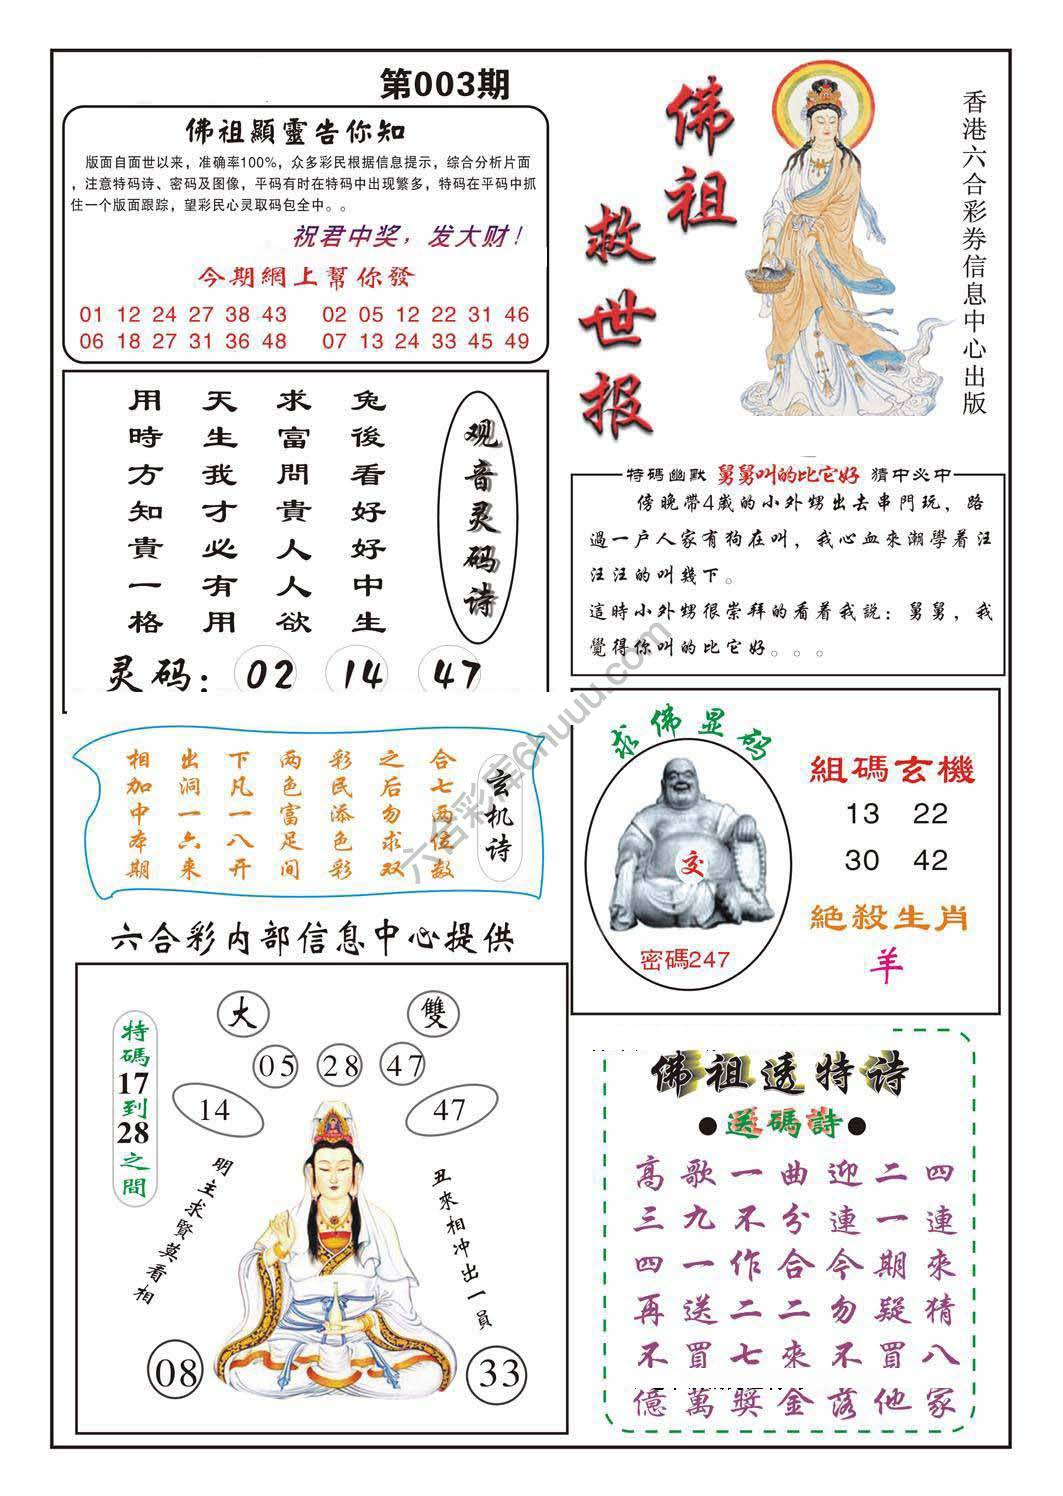 第003期
佛祖顯靈告你知
版面自面世以来，准确率100%，众多彩民根据信息提示，综合分析片面
，注意特码诗、密码及图像，平码有时在特码中出现繁多，特码在平码中抓
住一个版面跟踪，望彩民心灵取码包全中。。
祝君中奖，发大财！
今期網上幫你發
01 12 24 27 38 43 02 05 12 22 31 46
06 18 27 31 36 48 07 13 24 33 45 49
佛祖
救世报
香港六合彩券信息中心出版
观音灵码诗
兔後看好好中生
求富問貴人人欲
天生我才必有用
用時方知貴一格
灵码：02 14 47
特碼幽默 舅舅叫的比它好 猜中必中
傍晚帶4歲的小外甥出去串門玩，路
過一户人家有狗在叫，我心血來潮學着汪
汪汪的叫幾下。
這時小外甥很崇拜的看着我説：舅舅，我
覺得你叫的比它好。。。
玄机诗
合七两位数
之后勿求双
彩民添色彩
两色富足间
下凡一八开
出洞一六来
相加中本期
求佛显码
交
密碼247
組碼玄機
13 22
30 42
絶殺生肖
羊
六合彩内部信息中心提供
特碼17到28之間
大
雙
05 28 47
14
47
明主求賢莫看相
丑來相冲出一員
08
33
佛祖透特诗
●送碼詩●
高歌一曲迎二四
三九不分連一連
四一作合今期來
再送二二勿疑猜
不買七來不買八
億萬獎金落他家
六合彩库6huuu.com